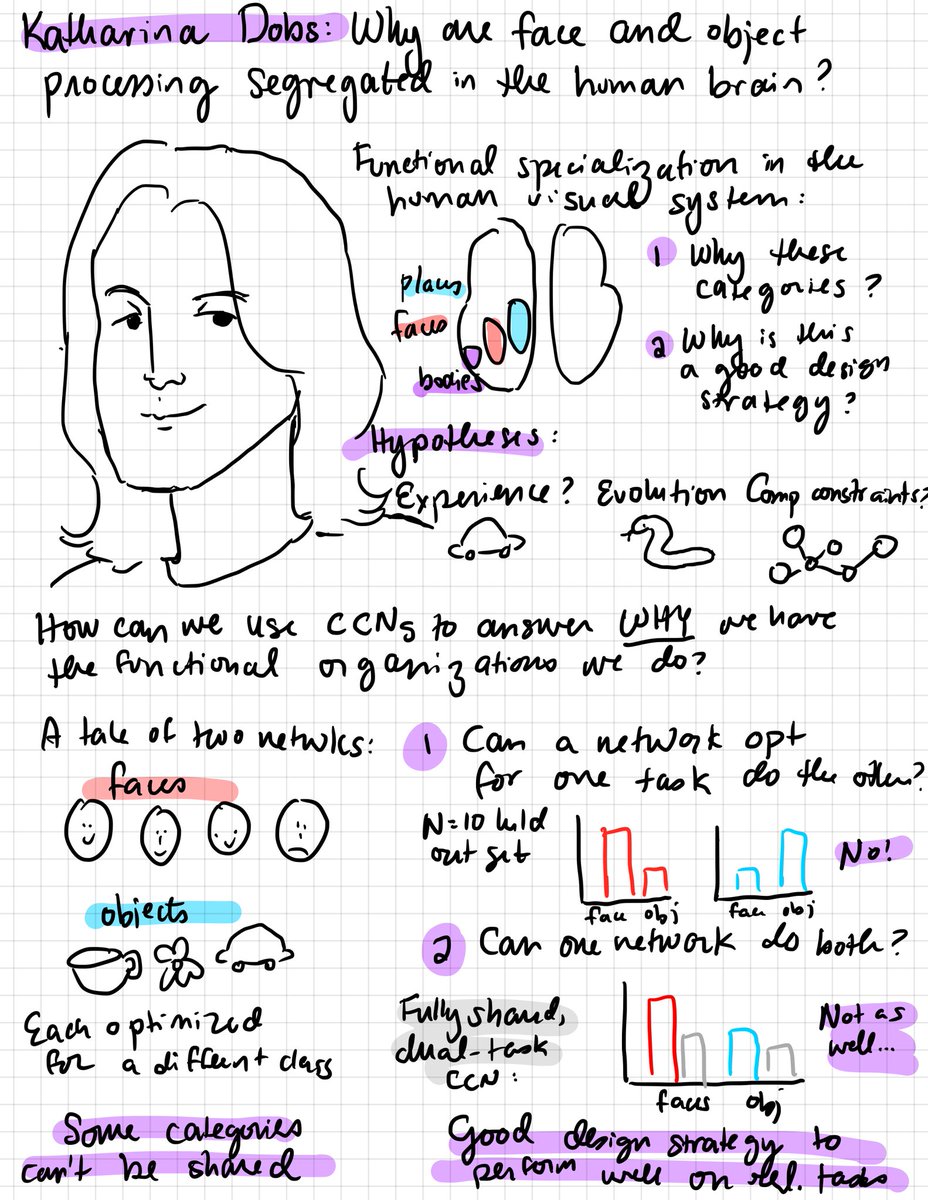 Katharina Dobs: Why are face and object
processing segregated in the human brain?
Functional specialization in the
human visual system:
places
faces
bodies
1 Why these
categories?
2 Why is this
a good design
strategy?
Hypotheses:
Experience? Evolution Comp constraints?
How can we use CCNs to answer WHY we have
the functional organizations we do?
A tale of two netwks:
faces
objects
Each optimized
for a different class
Some categories
can't be shared
1 Can a network opt
for one task do the other?
N=10 held
out set
face obj
face obj
No!
2 Can one network do both?
Fully shared,
dual-task
CCN:
faces obj
Not as
well...
Good design strategy to
perform well on rel. tasks